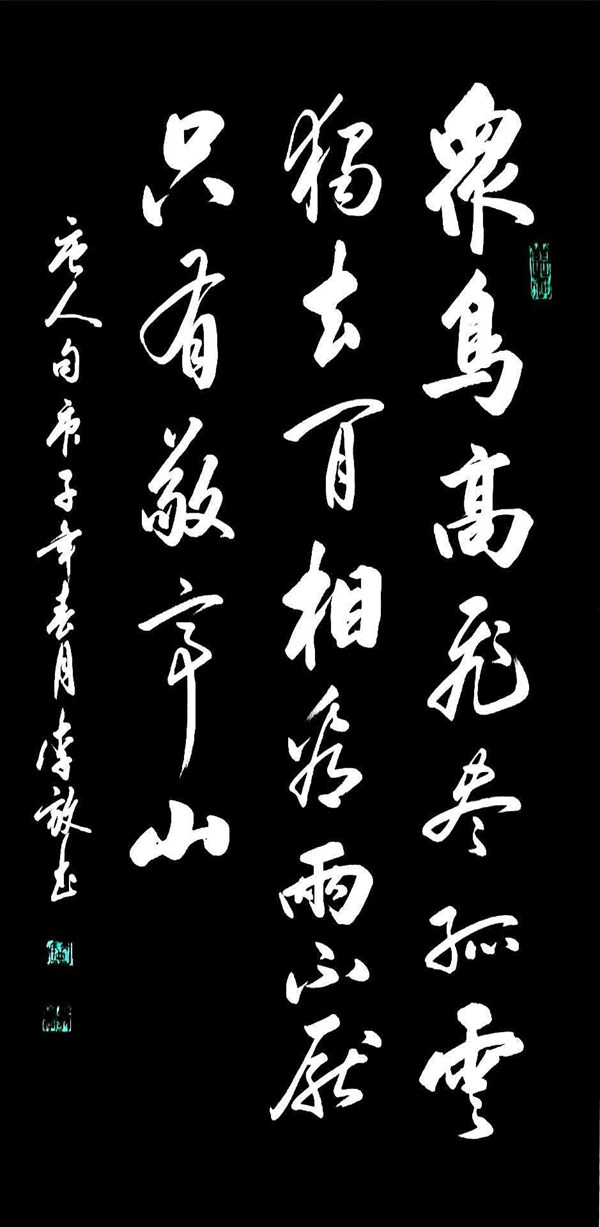 衆鳥高飛尽孤雲
獨去閒相看兩不厭
只有敬亭山
唐人句庚子年春月李放书